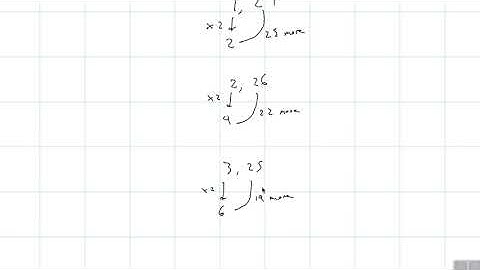 1, 2
x2
2 25 more
2, 26
x2
4 22 more
3, 25
x2
6 19 more